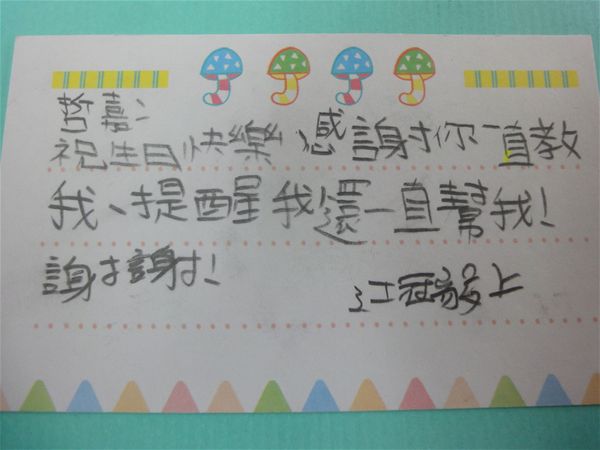 哲嘉：
祝生日快樂 感謝你一直教
我、提醒我還一直幫我！
謝謝！
江冠 上